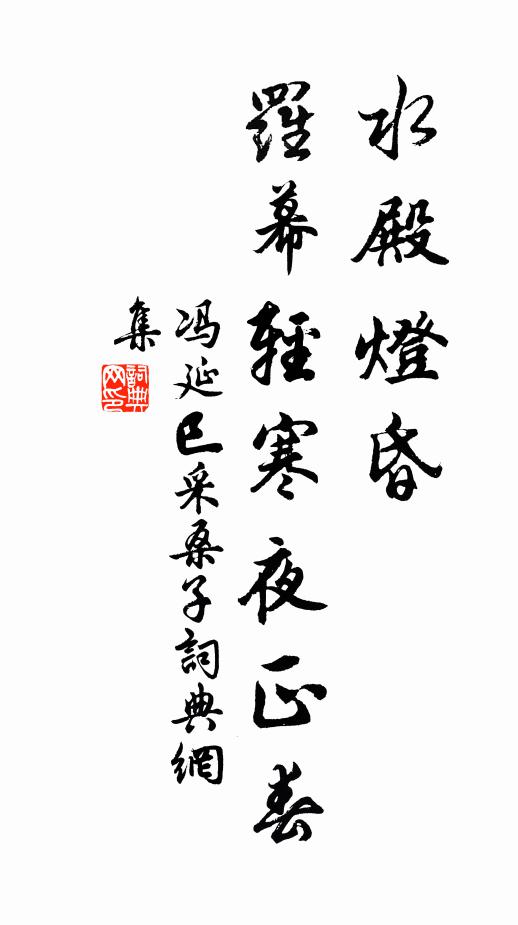 水殿燈昏
羅幕輕寒夜正春
冯延巳采桑子詞典網
集
詞典网印